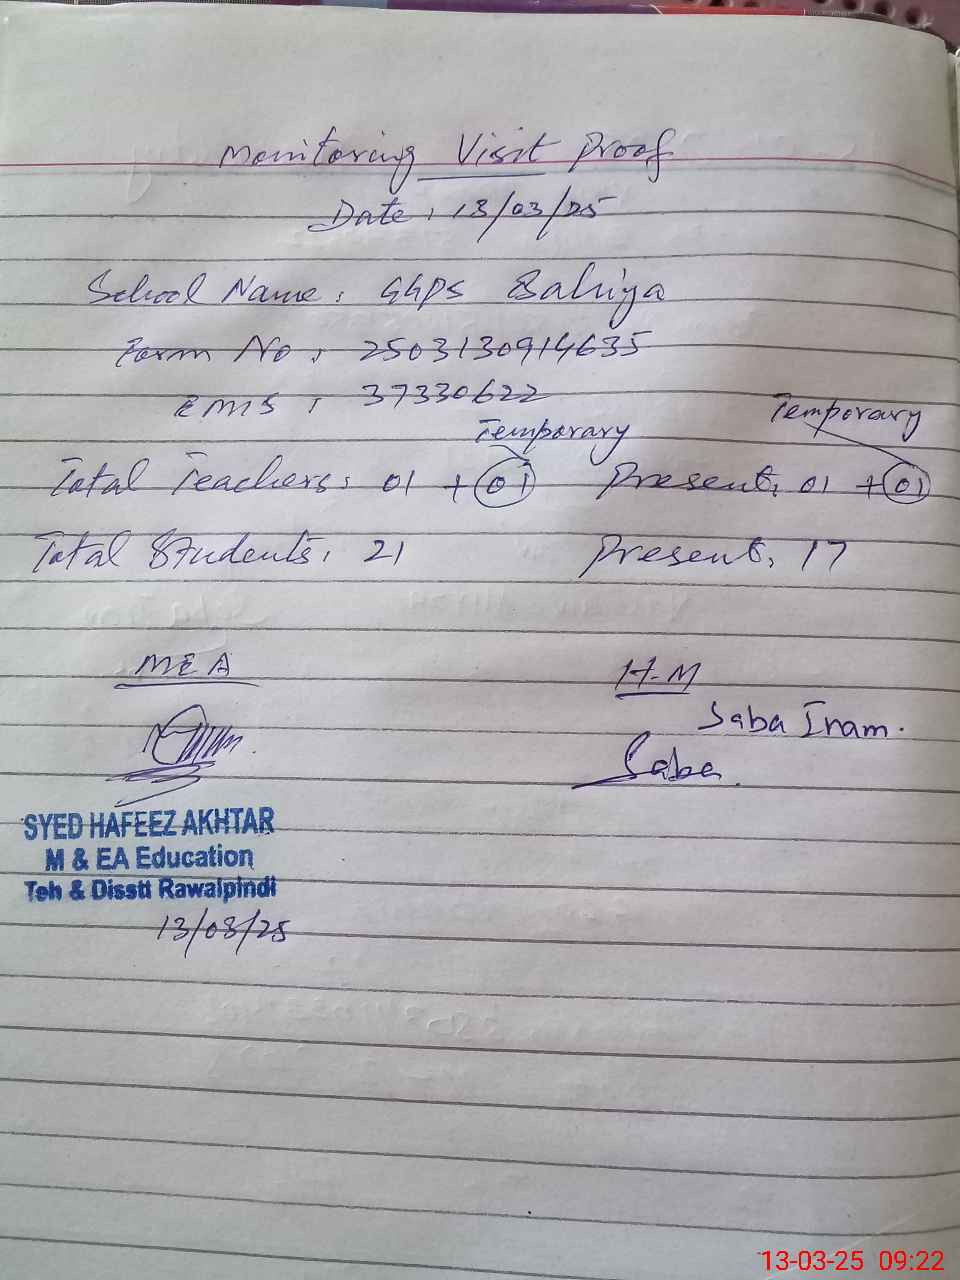 Monitoring Visit Proof
Date: 13/03/25
School Name: GGPS Sahiya
Form No: 2503130914635
EMIS: 37330622
Temporary Temporary
Total Teachers: 01 + 01 Present: 01 + 01
Total Students: 21 Present: 17
MEA H-M
Saba Inam.
Saba.
SYED HAFEEZ AKHTAR
M & EA Education
Teh & Disstt Rawalpindi
13/03/25
13-03-25 09:22